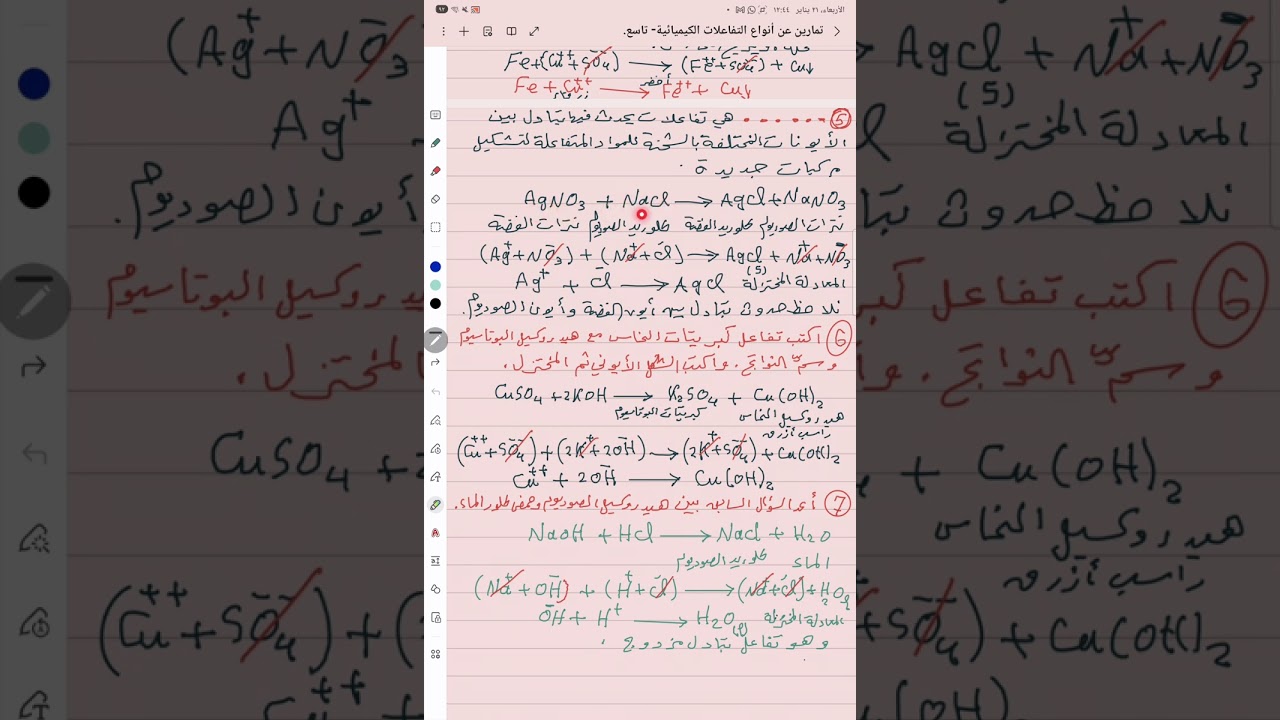 الأربعاء، ٢١ يناير ١٢:٤٤
٩٢
تمارين عن أنواع التفاعلات الكيميائية- تاسع.
Fe+(Cu⁺⁺+SO₄⁻⁻) → (Fe⁺⁺+SO₄⁻⁻) + Cu↓
Fe + Cu⁺⁺ → Fe⁺⁺ + Cu↓
زرقاء أخضر
⑤ ........ هي تفاعلات يحدث فيها تبادل بين
الأيونات المختلفة بالشحنة للمواد المتفاعلة لتشكيل
مركبات جديدة.
AgNO₃ + NaCl → AgCl + NaNO₃
نترات الصوديوم كلوريد الفضة كلوريد الصوديوم نترات الفضة
(Ag⁺+NO₃⁻) + (Na⁺+Cl⁻) → AgCl + Na⁺+NO₃⁻
Ag⁺ + Cl⁻ → AgCl (5) المعادلة المختزلة
نلاحظ حدوث تبادل بين أيون الفضة وأيون الصوديوم.
⑥ اكتب تفاعل كبريتات النحاس مع هيدروكسيل البوتاسيوم
وسمّ النواتج. واكتب الشكل الأيوني ثم المختزل.
CuSO₄ + 2KOH → K₂SO₄ + Cu(OH)₂
هيدروكسيل النحاس كبريتات البوتاسيوم
راسب أزرق
(Cu⁺⁺+SO₄⁻⁻)+(2K⁺+2OH⁻) → (2K⁺+SO₄⁻⁻)+Cu(OH)₂
Cu⁺⁺ + 2OH⁻ → Cu(OH)₂
⑦ أعد السؤال السابق بين هيدروكسيل الصوديوم وحمض كلور الماء.
NaOH + HCl → NaCl + H₂O
الماء كلوريد الصوديوم
(Na⁺+OH⁻) + (H⁺+Cl⁻) → (Na⁺+Cl⁻)+H₂O
OH⁻ + H⁺ → H₂O المعادلة المختزلة
وهو تفاعل تبادل مزدوج.